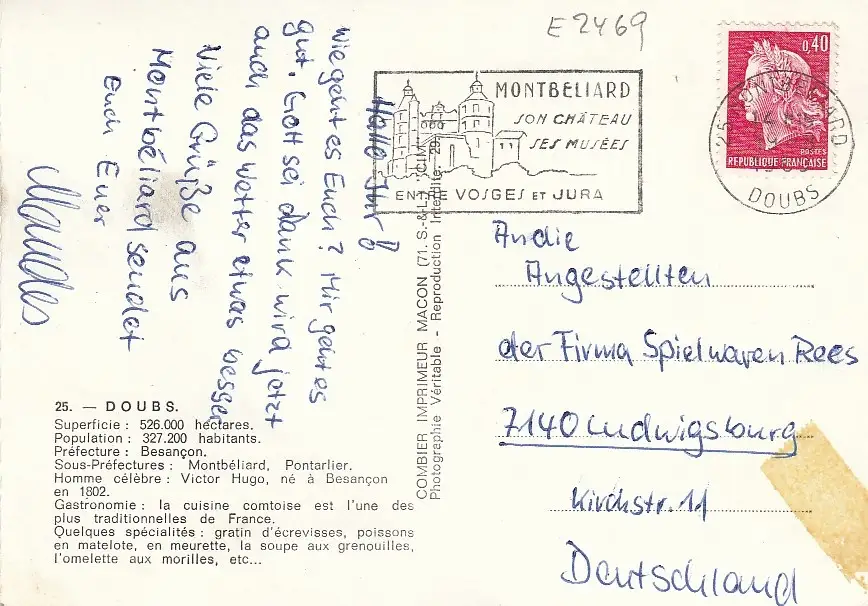 E 2469
0,40
POSTES
REPUBLIQUE FRANÇAISE
25
DOUBS
MONTBELIARD
SON CHÂTEAU
SES MUSÉES
ENTRE VOSGES ET JURA
Hallo Ihr!
wie geht es Euch? Mir geht es
gut. Gott sei dank wird jetzt
auch das Wetter etwas besser
Viele Grüße aus
Montbéliard sendet
Euch Euer
An die
Angestellten
der Firma Spielwaren Rees
7140 Ludwigsburg
Kirchstr. 11
Deutschland
COMBIER IMPRIMEUR MACON (71. S.-&-L.) "CIM"
Photographie Véritable - Reproduction Interdite
25. — DOUBS.
Superficie : 526.000 hectares.
Population : 327.200 habitants.
Préfecture : Besançon.
Sous-Préfectures : Montbéliard, Pontarlier.
Homme célèbre : Victor Hugo, né à Besançon
en 1802.
Gastronomie : la cuisine comtoise est l'une des
plus traditionnelles de France.
Quelques spécialités : gratin d'écrevisses, poissons
en matelote, en meurette, la soupe aux grenouilles,
l'omelette aux morilles, etc...